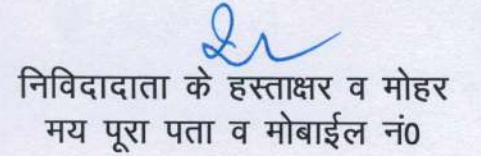 निविदादाता के हस्ताक्षर व मोहर
मय पूरा पता व मोबाईल नं0